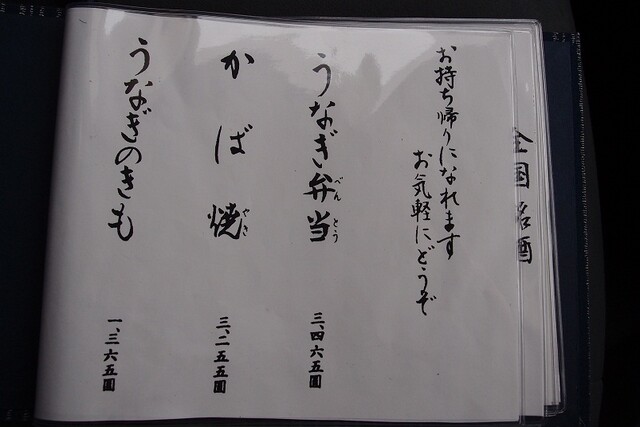 全国銘酒
お持ち帰りになれます
お気軽にどうぞ
うなぎ弁当
べんとう
三、四六五圓
かば焼
やき
三、二五五圓
うなぎのきも
一、三六五圓